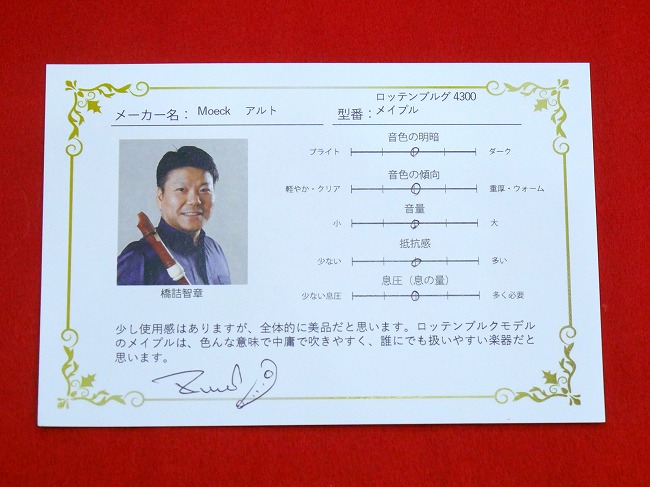 メーカー名： Moeck アルト
型番： ロッテンブルグ 4300
メイプル
音色の明暗
ブライト ダーク
音色の傾向
軽やか・クリア 重厚・ウォーム
音量
小 大
抵抗感
少ない 多い
息圧（息の量）
少ない息圧 多く必要
橋詰智章
少し使用感はありますが、全体的に美品だと思います。ロッテンブルクモデル
のメイプルは、色んな意味で中庸で吹きやすく、誰にでも扱いやすい楽器だと
思います。